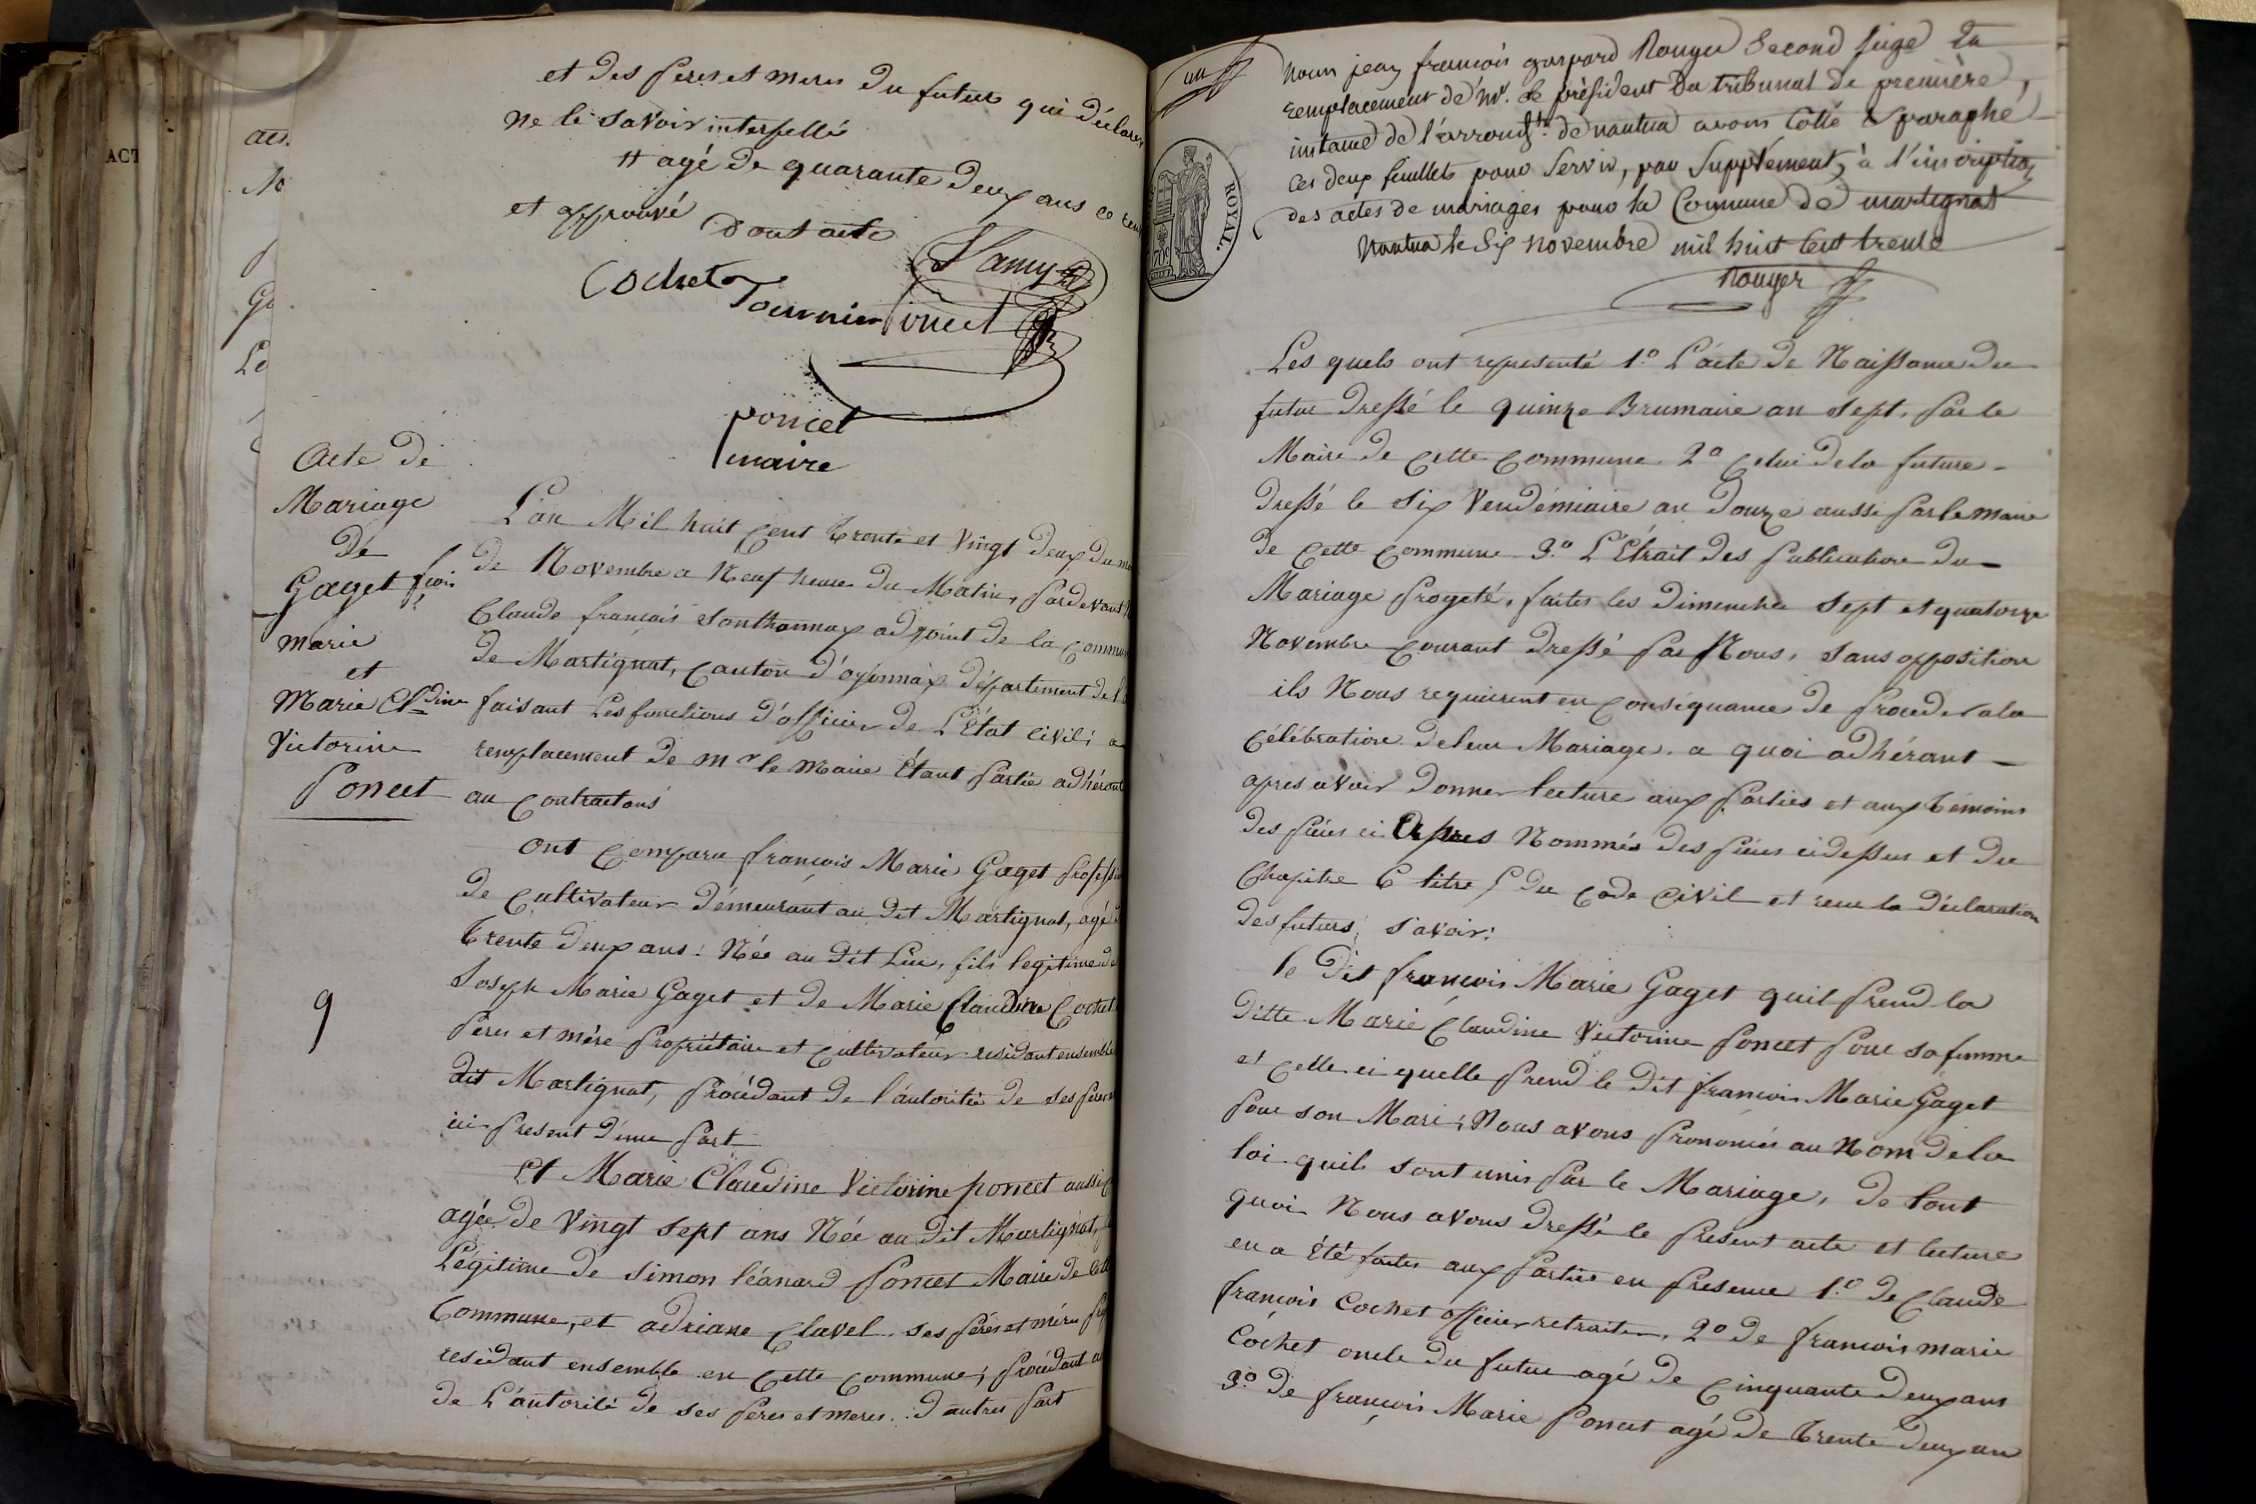 et des peres et meres du futur qui déclarent
ne le savoir interpellé
# agé de quarante deux ans ce
et approuvé Dont acte
Cochet Tournier Poncet
poncet
maire
Acte de
Mariage
De
Gaget fcois
marie
et
Marie Cldine
Victorine
Poncet
9
L'an Mil huit cent trente et Vingt deux du mois
de Novembre a Neuf heures du Matin, pardevant
Claude françois Sonthonnax adjoint de la commune
de Martignat, canton d'oyonnax département de l'
faisant Les fonctions d'officier de L'État civil; en
remplacement de mr le Maire Étant partie adhérant
au contractans
Ont comparu françois Marie Gaget profession
de cultivateur démeurant au dit Martignat, agé de
trente deux ans: Née au dit Lieu, fils legitime de
Joseph Marie Gaget et de Marie Claudine Cochet
peres et mère propriétaire et cultivateur residant ensemble
dit Martignat, procédant de l'autorité de ses peres
ici present d'une part
Et Marie Claudine Victorine poncet aussi
agée de Vingt sept ans Née au dit Martignat,
Légitime de simon léonard Poncet Maire de cette
Commune, et adriane Clavel ses péres et méres
residant ensemble en cette commune; procédant
de L'autorité de ses peres et meres d'autres part
ROYAL.
Nous jean françois gaspard Rouyer Second juge En
remplacement de Mr. le président Du tribunal de première
instance de l'arrondt. de nantua avons Cotté & paraphé
Ces deux feuillets pour Servir, par Supplément, à l'inscription
des actes de mariages pour la Commune de martignat
Nantua le Six novembre mil huit Cent trente
Rouyer
Les quels ont representé 1.º L'acte de Naissance du
futur Dressé le quinze Brumaire an sept, par le
Maire de cette commune 2º celui de la future
Dressé le six Vendémiaire an Douze aussi par le maire
de cette commune 3.º L'Étrait des publication du
Mariage progeté, faites les dimenche sept et quatorze
Novembre courant Dressé par Nous, sans opposition
ils Nous requierent en consiquance de proceder a la
célébration de leur Mariage. a quoi adhérant
apres avoir donner lecture aux parties et aux témoins
des piéces ci Apres Nommés des piéces cidessus et du
Chapitre 6 titre 5 du code civil et recu la déclaration
des futurs; savoir:
le Dit françois Marie Gaget quil prend la
ditte Marie Claudine Victorine Poncet pour sa femme
et celle ci quelle prend le dit françois Marie Gaget
pour son Mari; Nous avons prononcés au Nom de la
loi quils sont unis par le Mariage, de tout
quoi Nous avons dressé le present acte et lecture
en a été faites aux parties en presence 1.º de Claude
françois Cochet officier retraiter, 2º de françois marie
Cochet oncle du futur agé de cinquante deux ans
3.º de françois Marie Poncet agé de trente deux ans